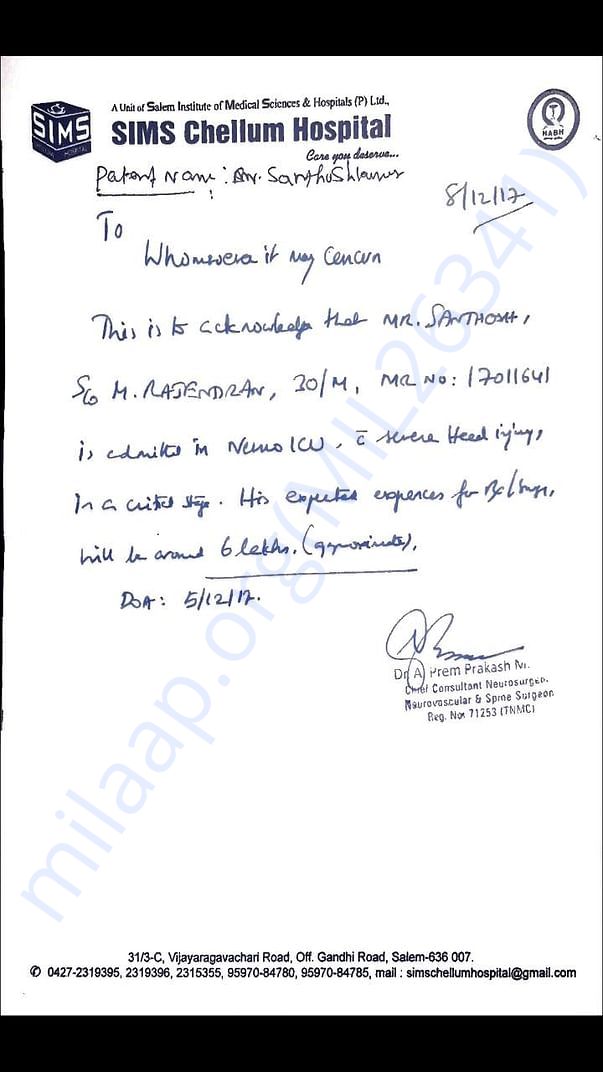 SIMS
CHELLUM HOSPITAL
A Unit of Salem Institute of Medical Sciences & Hospitals (P) Ltd.,
SIMS Chellum Hospital
Care you deserve...
NABH
Patient Name : Mr.
8/12/17
To
Whomsoever it may Concern
This is to acknowledge that MR. SANTHOSH,
S/o M. RAJENDRAN, 30/M, MR NO: 17011641
is admitted in Neuro ICU, c̄ severe Head injury,
In a critical stage. His expected expences for Rx/Surge,
will be around 6 lakhs. (approximate).
DOA: 5/12/17.
Dr. A. Prem Prakash M.
Chief Consultant Neurosurgeon
Neurovascular & Spine Surgeon
Reg. No: 71253 (TNMC)
31/3-C, Vijayaragavachari Road, Off. Gandhi Road, Salem-636 007.
✆ 0427-2319395, 2319396, 2315355, 95970-84780, 95970-84785, mail : simschellumhospital@gmail.com
milaap.org(MIL26341)